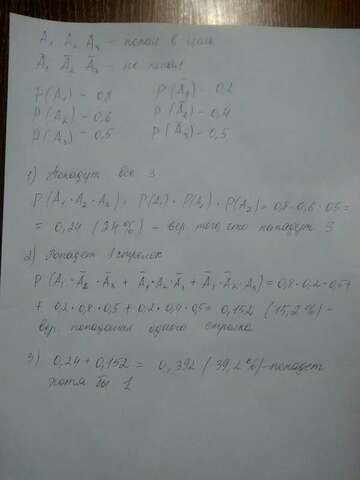 A₁ A₂ A₃ - попал в цель
Ā₁ Ā₂ Ā₃ - не попал
P(A₁) - 0,8 P(Ā₁) - 0,2
P(A₂) - 0,6 P(Ā₂) - 0,4
P(A₃) - 0,5 P(Ā₃) - 0,5
1) Попадут все 3
P(A₁·A₂·A₃) = P(A₁)·P(A₂)·P(A₃) = 0,8·0,6·0,5 =
= 0,24 (24%) - вер. того что попадут 3
2) Попадет 1 стрелок
P(A₁·Ā₂·Ā₃ + Ā₁·A₂·Ā₃ + Ā₁·Ā₂·A₃) = 0,8·0,2·0,5+
+ 0,2·0,8·0,5 + 0,2·0,4·0,5 = 0,152 (15,2%) -
вер. попадания одного стрелка
3) 0,24 + 0,152 = 0,392 (39,2%) - попадет
хотя бы 1